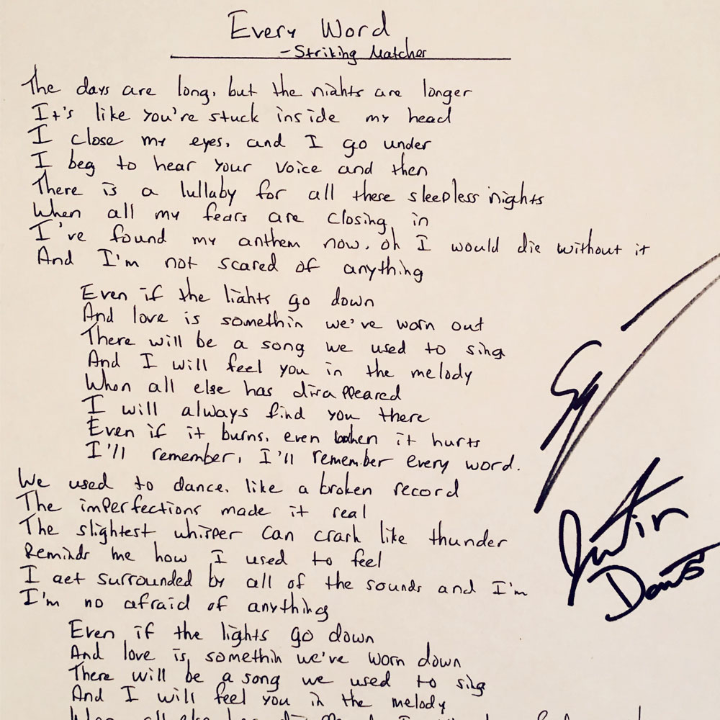 Every Word
- Striking Matches
The days are long, but the nights are longer
It's like you're stuck inside my head
I close my eyes, and I go under
I beg to hear your voice and then
There is a lullaby for all these sleepless nights
When all my fears are closing in
I've found my anthem now, oh I would die without it
And I'm not scared of anything
Even if the lights go down
And love is somethin we've worn out
There will be a song we used to sing
And I will feel you in the melody
When all else has disappeared
I will always find you there
Even if it burns, even when it hurts
I'll remember, I'll remember every word.
We used to dance, like a broken record
The imperfections made it real
The slightest whisper can crash like thunder
Reminds me how I used to feel
I get surrounded by all of the sounds and I'm
I'm no afraid of anything
Even if the lights go down
And love is somethin we've worn down
There will be a song we used to sing
And I will feel you in the melody
Justin
Davis